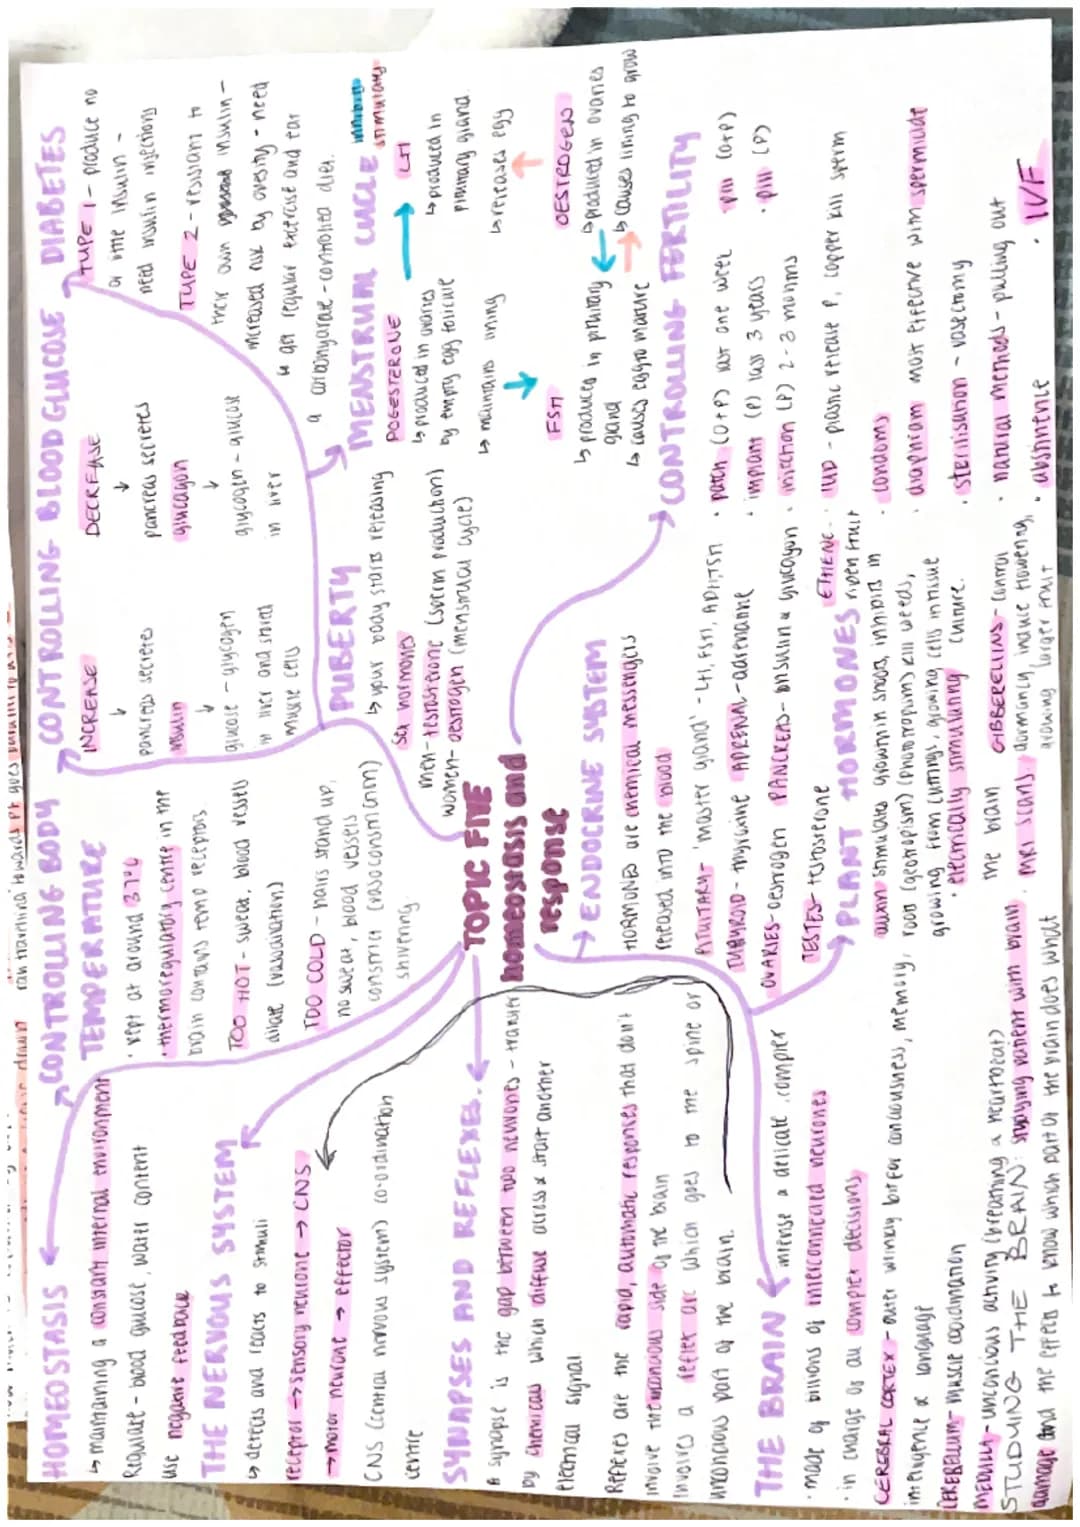 HOMEOSTASIS
↳ maintaining a constant internal environment
Regulate - blood glucose, water content
use negative feedback
THE NERVOUS SYSTEM
↳ detects and reacts to stimuli
receptor → sensory neurone → CNS
→ motor neurone → effector
CNS (central nervous system) co-ordination
centre
SYNAPSES AND REFLEXES
A synapse is the gap between two neurones - transfer
by chemicals which diffuse across & start another
electrical signal
Reflexes are the rapid, automatic responses that don't
involve the conscious side of the brain
Involves a reflex arc which goes to the spine or
unconcious part of the brain.
THE BRAIN
intense & delicate, complex
· made of billions of interconnected neurones
· in charge of all complex decisions
CEREBRAL CORTEX - outer wrinkly bit for conciousness, memory,
intelligence & language
CEREBELLUM - muscle coordination
MEDULLA - unconcious activity (breathing & heartbeat)
STUDYING THE BRAIN: studying patient with brain
damage and the effects to know which part of the brain does what
· MRI scans
· electrically stimulating
the brain
CONTROLLING BODY
TEMPERATURE
· kept at around 37°C
· thermoregulatory centre in the
brain contains temp receptors.
TOO HOT - sweat, blood vessels
dilate (vasodilation)
TOO COLD - hairs stand up,
no sweat, blood vessels
constrict (vasoconstriction)
shivering
TOPIC FIVE
homeostasis and
response
CONTROLLING BLOOD GLUCOSE
INCREASE
↓
pancreas secretes
insulin
↓
glucose - glycogen
in liver and stored
muscle cells
DECREASE
↓
pancreas secretes
glucagon
↓
glycogen - glucose
in liver
DIABETES
TYPE 1 - produce no
or little insulin -
need insulin injections
TYPE 2 - resistant to
their own insulin -
increased risk by obesity - need
↳ get regular exercise and eat
a carbohydrate - controlled diet.
PUBERTY
↳ your body starts releasing
sex hormones
men - testosterone (sperm production)
women - oestrogen (menstrual cycle)
MENSTRUAL CUCLE
inhibits
stimulates
POGESTERONE
↳ produced in ovaries
by empty egg follicle
↳ maintains lining
LH
↳ produced in
pituitary gland.
↳ releases egg
FSH
↳ produced in pituitary
gland
↳ causes egg to mature
OESTROGEN
↳ produced in ovaries
↳ causes lining to grow
ENDOCRINE SYSTEM
HORMONES are chemical messengers
released into the blood
PITUITARY - 'master gland' - LH, FSH, ADH, TSH
THYROID - thyroxine ADRENAL - adrenaline
OVARIES - oestrogen PANCREAS - insulin & glucagon
TESTES - testosterone
PLANT HORMONES
auxin stimulates growth in shoots, inhibits in
root (geotropism) (phototropism) kill weeds,
growing from cuttings, growing cells in tissue
culture.
ETHENE -
ripen fruit
GIBBERELLINS - control
dormancy, induce flowering,
growing larger fruit
CONTROLLING FERTILITY
· patch (O+P) last one week
· pill (O+P)
· implant (P) last 3 years
· pill (P)
· injection (P) 2-3 months
· IUD - plastic release P, copper kill sperm
· condoms
· diaphram most effective with spermicide
· sterilisation - vasectomy
· natural methods - pulling out
· abstinence
· IVF